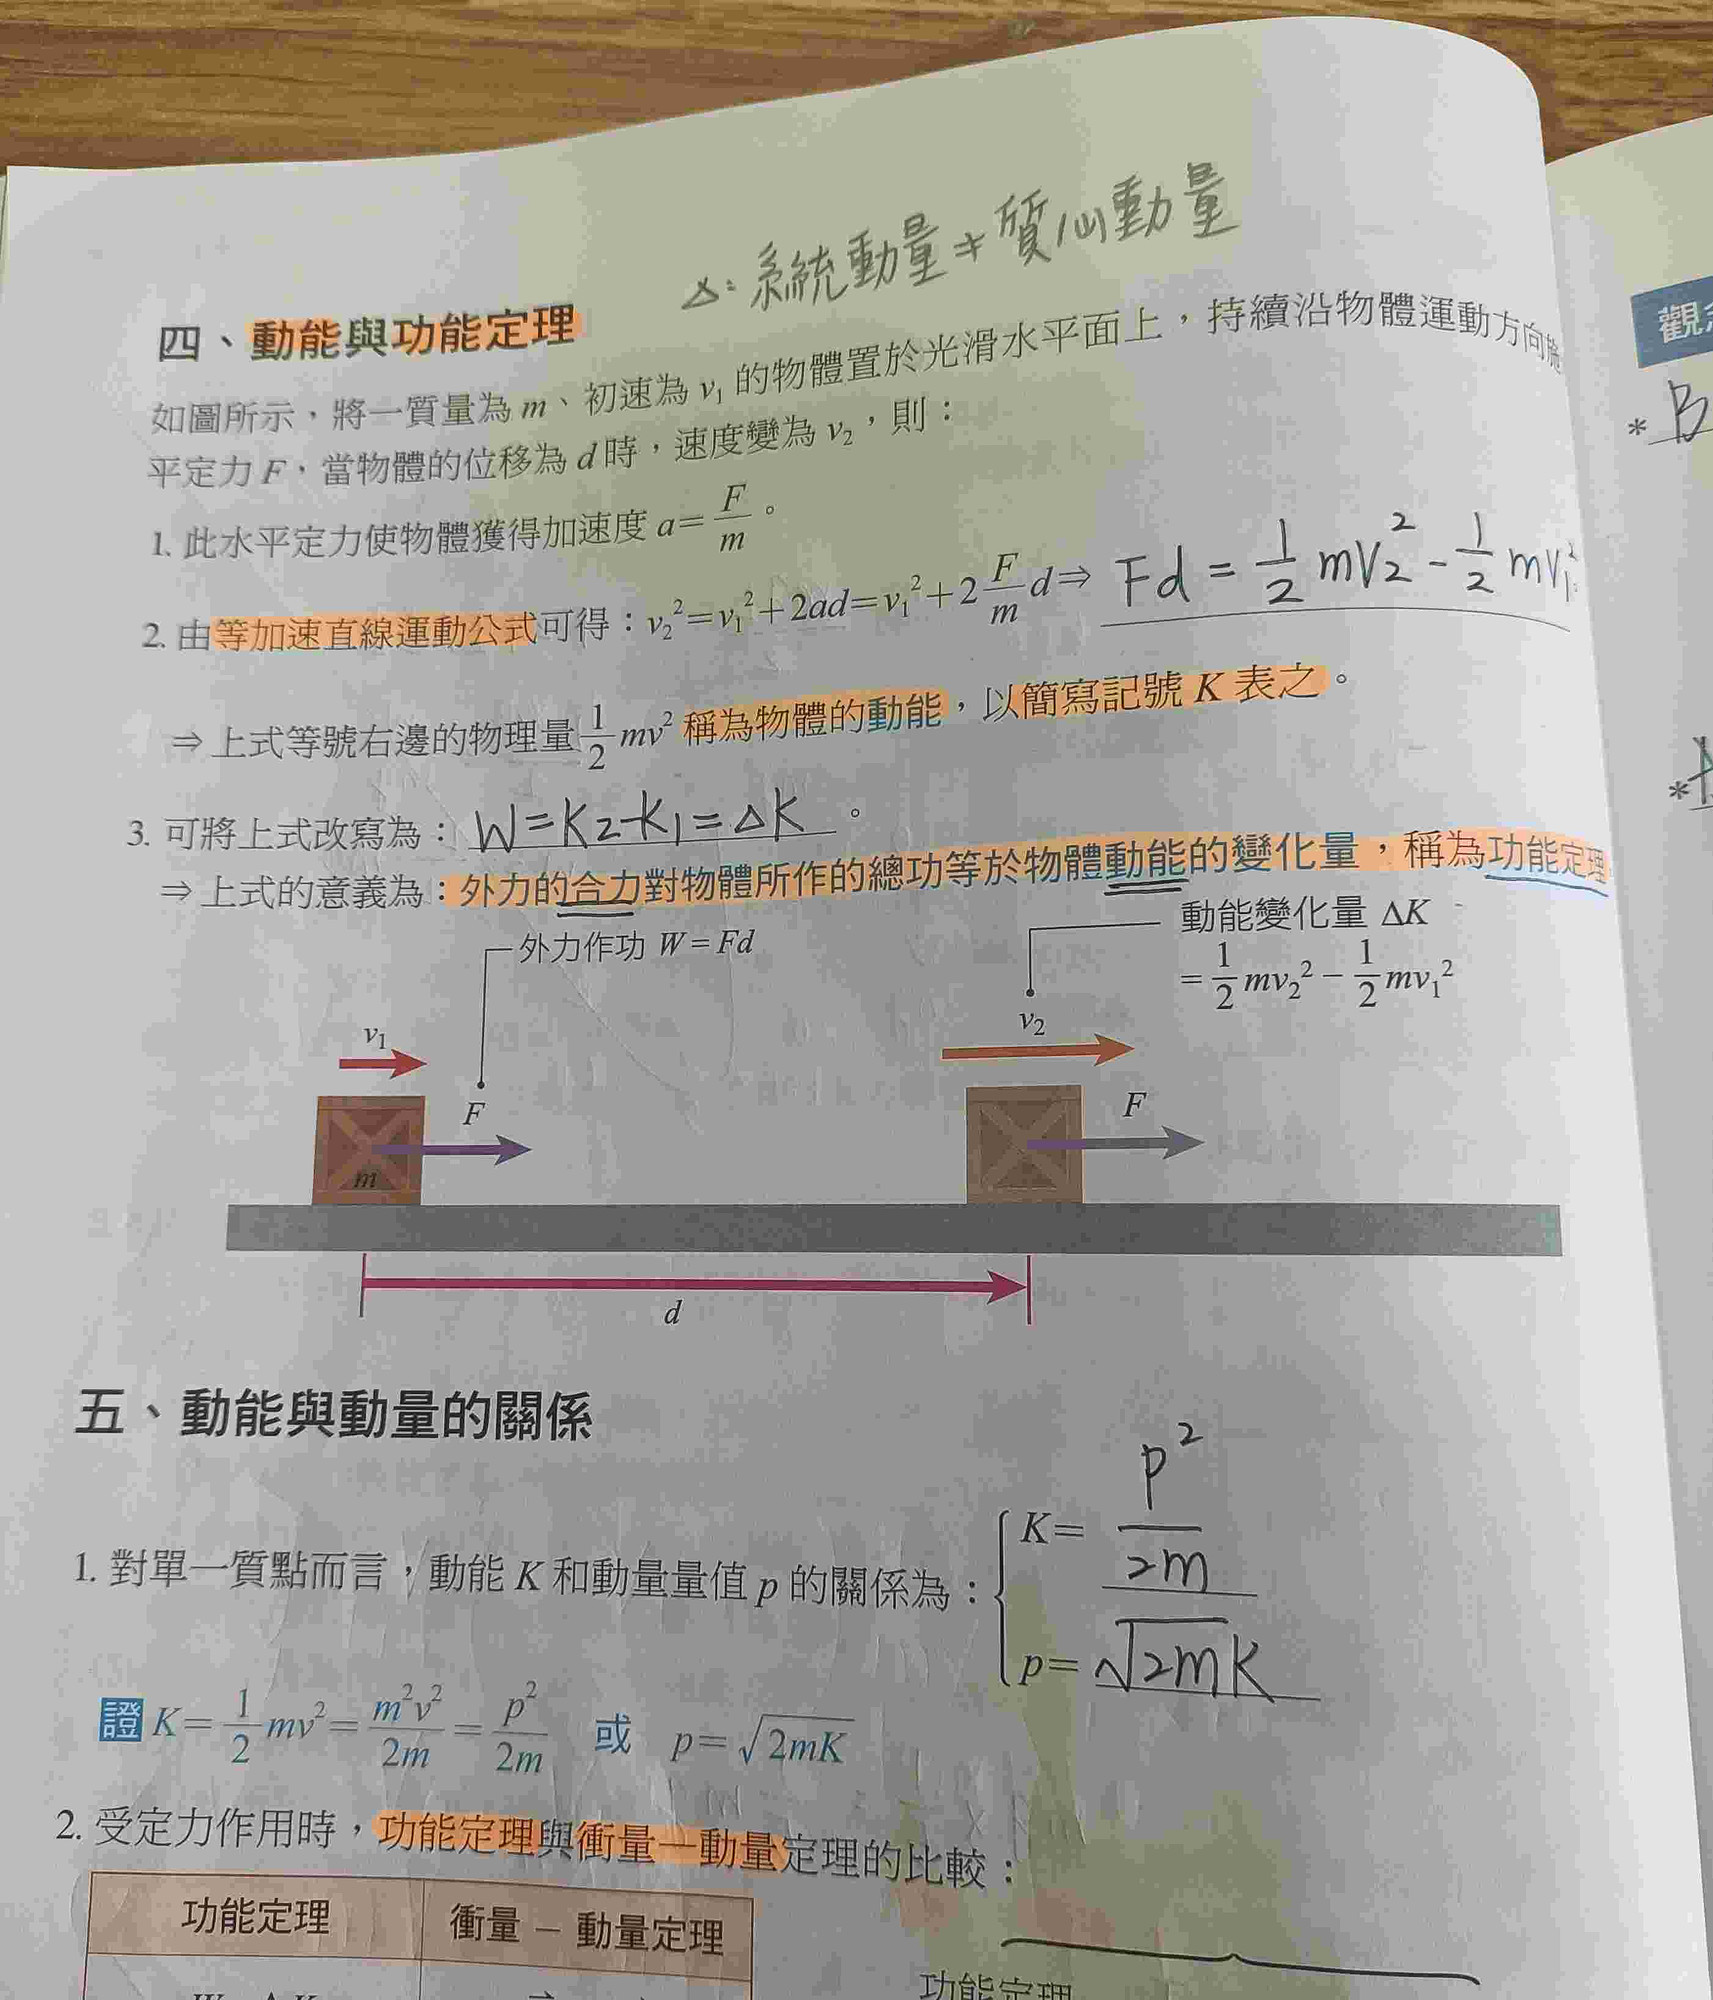 △:系統動量≠質心動量
四、動能與功能定理
如圖所示,將一質量為 m、初速為 v₁ 的物體置於光滑水平面上,持續沿物體運動方向施
平定力 F,當物體的位移為 d 時,速度變為 v₂,則:
1. 此水平定力使物體獲得加速度 a=F/m。
2. 由等加速直線運動公式可得:v₂²=v₁²+2ad=v₁²+2(F/m)d⇒ Fd=1/2 mv₂²-1/2 mv₁²
⇒上式等號右邊的物理量 1/2 mv² 稱為物體的動能,以簡寫記號 K 表之。
3. 可將上式改寫為:W=K₂-K₁=△K。
⇒上式的意義為:外力的合力對物體所作的總功等於物體動能的變化量,稱為功能定理
外力作功 W=Fd
動能變化量 ΔK
=1/2 mv₂²-1/2 mv₁²
v₁
v₂
F
F
m
d
五、動能與動量的關係
1. 對單一質點而言,動能 K 和動量量值 p 的關係為:
K=p²/2m
p=√2mK
證 K=1/2 mv²=m²v²/2m=p²/2m 或 p=√2mK
2. 受定力作用時,功能定理與衝量—動量定理的比較:
功能定理 衝量－動量定理
功能定理
觀
* B
*